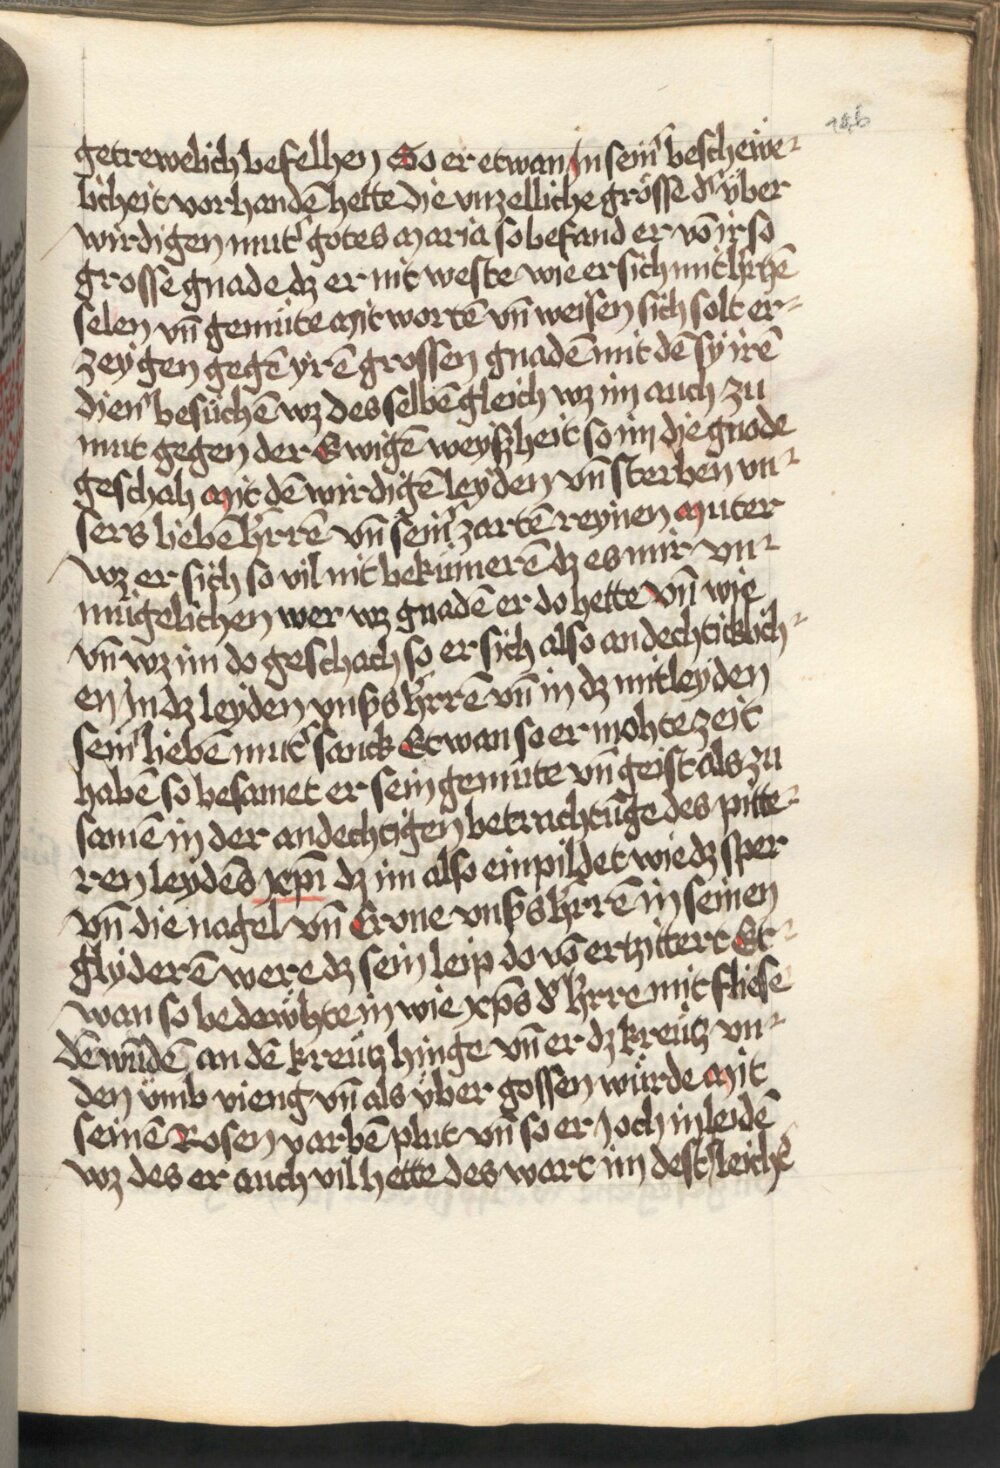 getrewelich befelhen So er etwan In sein' bescheiwe-
licheit vorhandē hette die vnzelliche grösse d' über
wirdigen mut' gotes maria so befand er vō ir so
grosse gnade dz er nit weste wie er sich mit hrtzē
selen vn̄ gemüte mit wortē vn̄ weisen sich solt er-
zeygen gegē yrē grossen gnadē mit dē sy irē
dien' besüchē wz des selbē gleich wz im auch zu
mut gegen der Ewigē weyszheit so im die gnode
geschah mit dē wirdigē leyden vn̄ sterben vn-
sers liebē hrrē vn̄ sein' zartē reynen muter
wz er sich so vil nit bekümerē dz es mir vn-
mügelichen wer wz gnadē er do hette vn̄ wie
vn̄ wz im do geschach so er sich also andechticklich-
en In dz leyden vnsers hrrē vn̄ in dz mitleyden
sein' liebē mut' sanck Etwan so er mohte zeit
habē so besamet er sein gemüte vn̄ geist als zu
samē in der andechtigen betrachtūge des pitte-
ren leydēs xp̄i dz im also einpildet wie dz sper
vn̄ die nagel vn̄ Crone vnsers hrrē in seinen
glyderē were dz sein leip do vō ertzittert Et-
wan so bedawhte in wie xp̄s d' hrre mit fliese
dē wūdē an dē kreütz hinge vn̄ er dz kreütz vn-
den vmb vieng vn̄ als über gossen würde mit
seinē Rosen varbē plut vn̄ so er joch in leidē
wz des er auch vil hette des wart im dest leichē